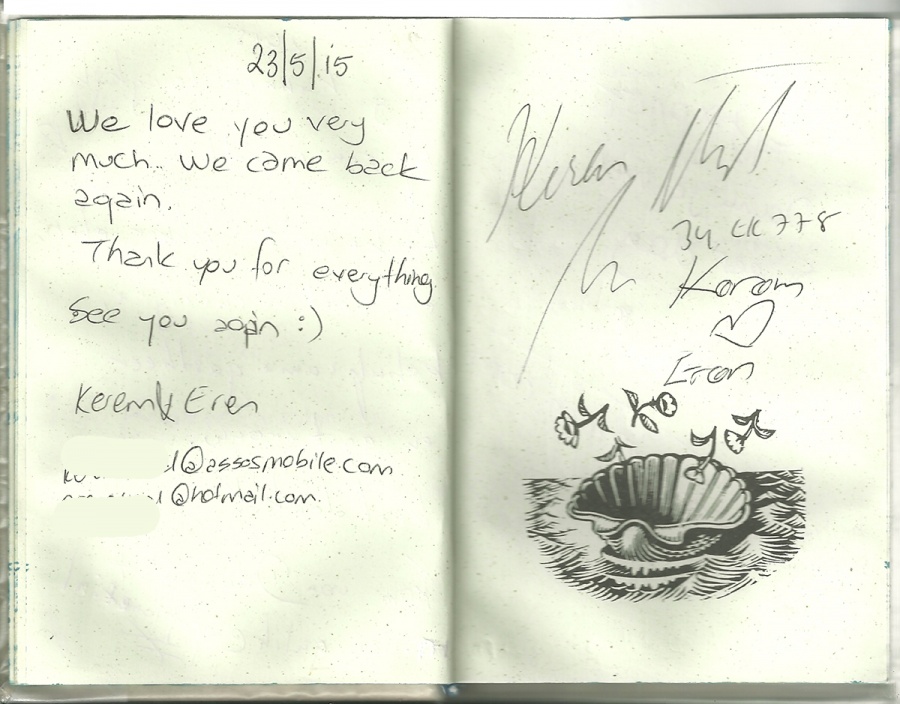 23/5/15
We love you very
much.. We came back
again.
Thank you for everything
See you again :)
Kerem & Eren
@assosmobile.com
@hotmail.com.
34 CK 778
Kerem
Eren